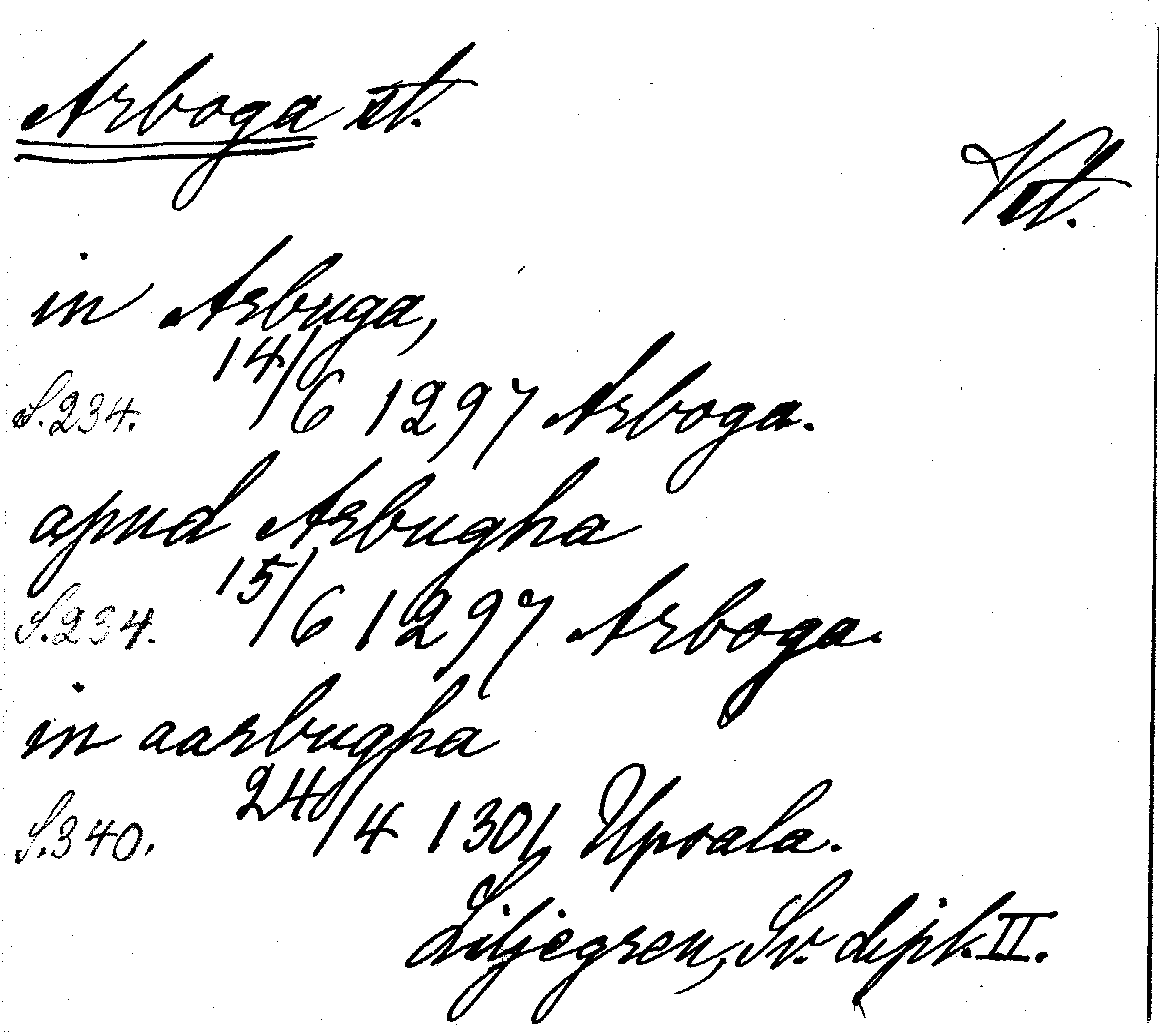 Arboga st.
Vst.
in Arbuga,
S.234. 14/6 1297 Arboga.
apud Arbugha
S.234. 15/6 1297 Arboga.
in aarbugha
S.340. 24/4 1301 Upsala.
Liljegren, Sv. dipl. II.